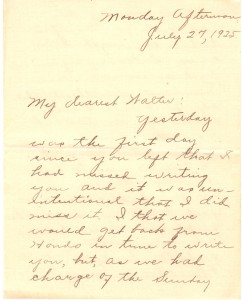 Monday Afternoon
July 27, 1925
My Dearest Walter:
Yesterday
was the first day
since you left that I
had missed writing
you and it was un-
intentional that I did
miss it. I that we
would get back from
in time to write
you, but, as we had
charge of the Sunday